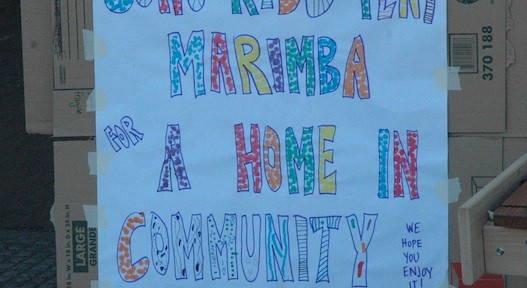 MARIMBA
FOR
A HOME IN
COMMUNITY
WE
HOPE
YOU
ENJOY
IT!
370 188
LARGE
GRANDE